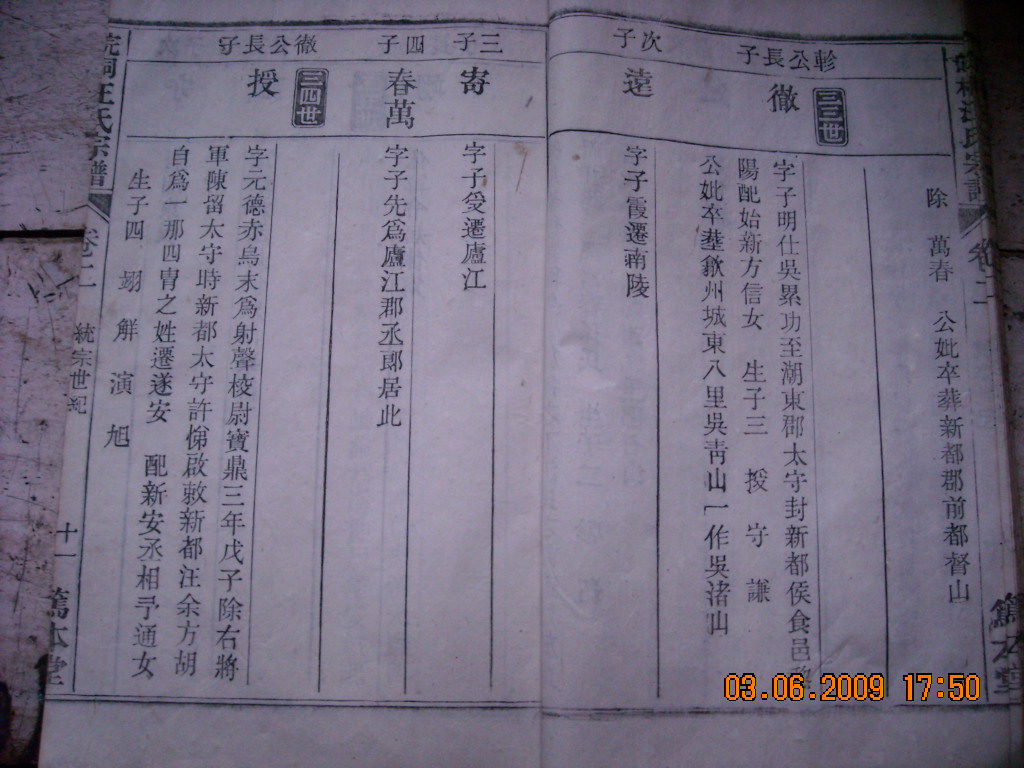 除 萬春 公妣卒葬新都郡前都督山
軫公長子
三三世
徹
字子明仕吳累功至潮東郡太守封新都侯食邑
陽配始新方信女 生子三 授 守 謙
公妣卒塟歙州城東八里吳靑山一作吳渚山
次子
逵
字子霞遷南陵
三子
寄
字子受遷廬江
四子
春萬
字子先爲廬江郡丞郎居此
徹公長子
三四世
授
字元德赤烏末爲射聲校尉寶鼎三年戊子除右將
軍陳留太守時新都太守許悌啟敕新都汪余方胡
自爲一那四胄之姓遷遂安 配新安丞相予通女
生子四 翊 觧 演 旭
皖桐汪氏宗譜
卷二
統宗世紀
十一
篤本堂
汪氏宗譜
卷二
篤本堂
03.06.2009 17:50